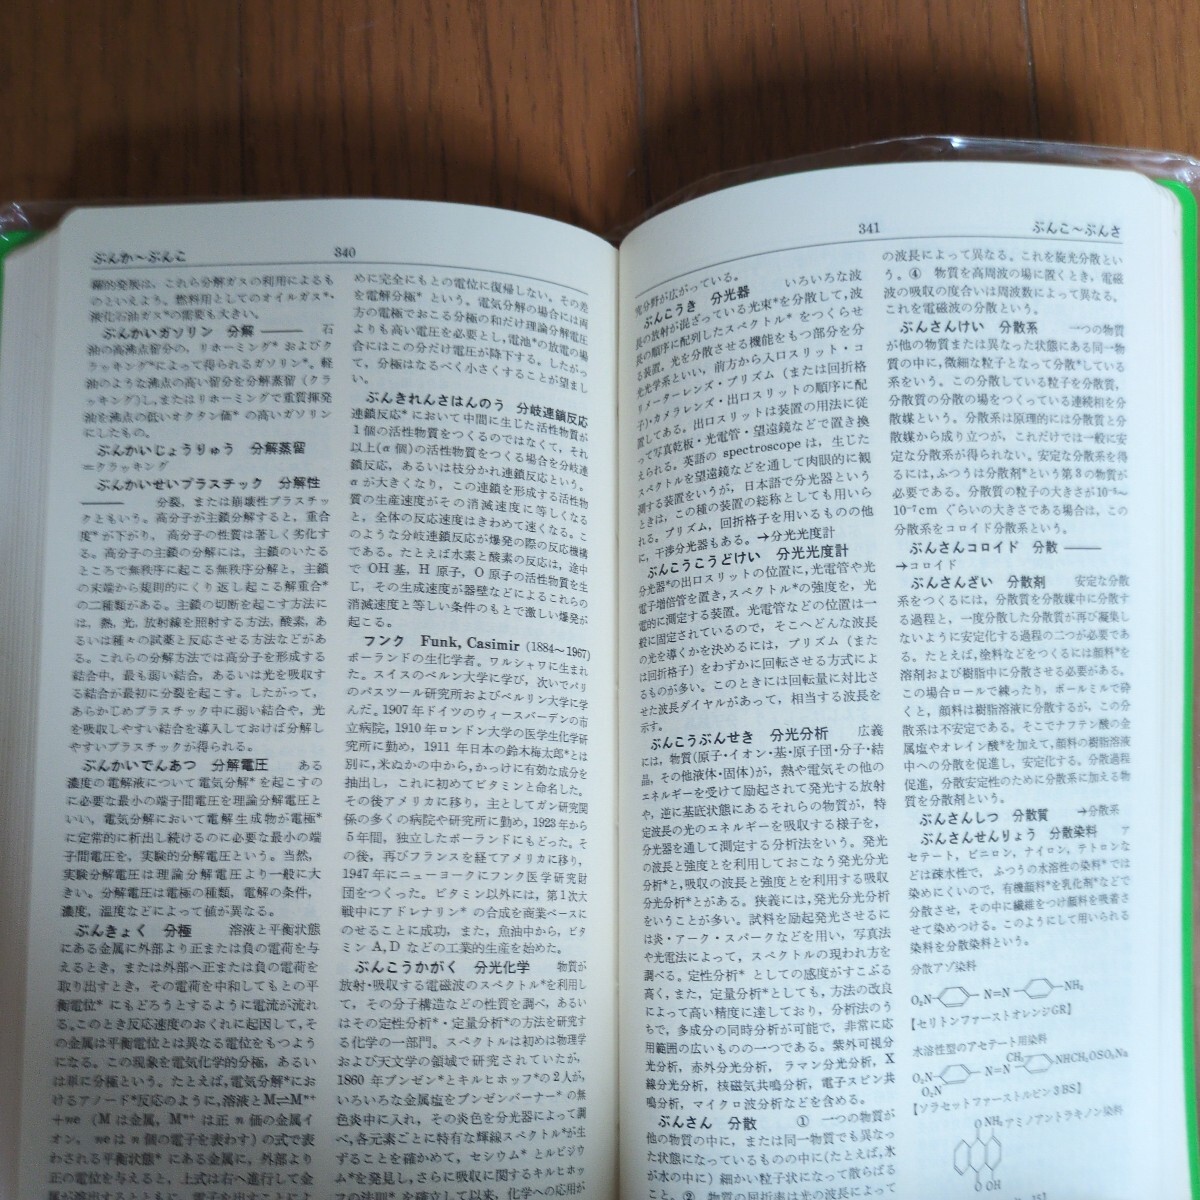 ぶんか～ぶんこ 340
糊的発展は，これら分解ガスの利用によるも
のといえよう。燃料用としてのオイルガス*，
液化石油ガス*の需要も大きい。
ぶんかいガソリン 分解―― 石
油の高沸点留分の，リホーミング*およびク
ラッキング*によって得られるガソリン*。軽
油のような沸点の高い留分を分解蒸留（クラ
ッキング）し，またはリホーミングで重質揮発
油を沸点の低いオクタン価*の高いガソリン
にしたもの。
ぶんかいじょうりゅう 分解蒸留
＝クラッキング
ぶんかいせいプラスチック 分解性
―― 分裂，または崩壊性プラスチッ
クともいう。高分子が主鎖分解すると，重合
度*が下がり，高分子の性質は著しく劣化す
る。高分子の主鎖の分解には，主鎖のいたる
ところで無秩序に起こる無秩序分解と，主鎖
の末端から規則的にくり返し起こる解重合*
の二種類がある。主鎖の切断を起こす方法に
は，熱，光，放射線を照射する方法，酸素，あ
るいは種々の試薬と反応させる方法などがあ
る。これらの分解方法では高分子を形成する
結合中，最も弱い結合，あるいは光を吸収す
る結合が最初に分裂を起こす。したがって，
あらかじめプラスチック中に弱い結合や，光
を吸収しやすい結合を導入しておけば分解し
やすいプラスチックが得られる。
ぶんかいでんあつ 分解電圧 ある
濃度の電解液について電気分解*を起こすの
に必要な最小の端子間電圧を理論分解電圧と
いい，電気分解において電解生成物が電極*
に定常的に析出し続けるのに必要な最小の端
子間電圧を，実験的分解電圧という。当然，
実験分解電圧は理論分解電圧より一般に大
きい。分解電圧は電極の種類，電解の条件，
濃度，温度などによって値が異なる。
ぶんきょく 分極 溶液と平衡状態
にある金属に外部より正または負の電荷を与
えるとき，または外部へ正または負の電荷を
取り出すとき，その電荷を中和してもとの平
衡電位*にもどろうとするように電流が流れ
る。このとき反応速度のおくれに起因して，そ
の金属は平衡電位とは異なる電位をもつよう
になる。この現象を電気化学的分極，あるい
は単に分極という。たとえば，電気分解*にお
けるアノード*反応のように，溶液とM⇌Mⁿ⁺
+ne（Mは金属，Mⁿ⁺は正n価の金属イ
オン，neはn個の電子を表わす）の式で表
わされる平衡状態*にある金属に，外部より
正の電位を与えると，上式は右へ進行して金
属が溶出するとともに，電子を出すことによ
めに完全にもとの電位に復帰しない。その差
を電解分極*という。電気分解の場合には両
方の電極でおこる分極の和だけ理論分解電圧
よりも高い電圧を必要とし，電池*の放電の場
合にはこの分だけ電圧が降下する。したがっ
て，分極はなるべく小さくすることが望まし
い。
ぶんきれんさはんのう 分岐連鎖反応
連鎖反応*において中間に生じた活性物質が
1個の活性物質をつくるのではなくて，それ
以上(α個)の活性物質をつくる場合を分岐連
鎖反応，あるいは枝分かれ連鎖反応という。
αが大きくなり，この連鎖を形成する活性物
質の生産速度がその消滅速度に等しくなる
と，全体の反応速度はきわめて速くなる。こ
のような分岐連鎖反応が爆発の際の反応機構
である。たとえば水素と酸素の反応は，途中
でOH基，H原子，O原子の活性物質を生
じ，その生成速度が器壁などによるこれらの
消滅速度と等しい条件のもとで激しい爆発が
起こる。
フンク Funk, Casimir (1884～1967)
ポーランドの生化学者。ワルシャワに生まれ
た。スイスのベルン大学に学び，次いでパリ
のパスツール研究所およびベルリン大学に学
んだ。1907年ドイツのウィースバーデンの市
立病院，1910年ロンドン大学の医学生化学研
究所に勤め，1911年日本の鈴木梅太郎*とは
別に，米ぬかの中から，かっけに有効な成分を
抽出し，これに初めてビタミンと命名した。
その後アメリカに移り，主としてガン研究関
係の多くの病院や研究所に勤め，1923年から
5年間，独立したポーランドにもどった。そ
の後，再びフランスを経てアメリカに移り，
1947年にニューヨークにフンク医学研究財
団をつくった。ビタミン以外には，第1次大
戦中にアドレナリン*の合成を商業ベースに
のせることに成功，また，魚油中から，ビタ
ミンA,Dなどの工業的生産を始めた。
ぶんこうかがく 分光化学 物質が
放射・吸収する電磁波のスペクトル*を利用し
て，その分子構造などの性質を調べ，あるい
はその定性分析*・定量分析*の方法を研究す
る化学の一部門。スペクトルは初めは物理学
および天文学の領域で研究されていたが，
1860年ブンゼン*とキルヒホッフ*の2人が，
いろいろな金属塩をブンゼンバーナー*の無
色炎中に入れ，その炎色を分光器によって調
べ，各元素ごとに特有な輝線スペクトル*が生
ずることを確かめて，セシウム*とルビジウ
ム*を発見し，さらに吸収に関するキルヒホッ
フの法則*を確立して以来，化学への応用が
341 ぶんこ～ぶんさ
度分野が広がっている。
ぶんこうき 分光器 いろいろな波
長の放射が混ざっている光束*を分散して，波
長の順序に配列したスペクトル*をつくらせ
る装置。光を分散させる機能をもつ部分を分
光光学系といい，前方から入口スリット・コ
リメーターレンズ・プリズム（または回折格
子）・カメラレンズ・出口スリットの順序に配
置してある。出口スリットは装置の用法に従
って写真乾板・光電管・望遠鏡などで置き換
えられる。英語のspectroscopeは，生じた
スペクトルを望遠鏡などを通して肉眼的に観
測する装置をいうが，日本語で分光器という
ときは，この種の装置の総称としても用いら
れる。プリズム，回折格子を用いるものの他
に，干渉分光器もある。→分光光度計
ぶんこうこうどけい 分光光度計
分光器*の出口スリットの位置に，光電管や光
電子増倍管を置き，スペクトル*の強度を，光
電的に測定する装置。光電管などの位置は一
般に固定されているので，そこへどんな波長
の光を導くかを決めるには，プリズム（また
は回折格子）をわずかに回転させる方式によ
るものが多い。このときには回転量に対比さ
せた波長ダイヤルがあって，相当する波長を
示す。
ぶんこうぶんせき 分光分析 広義
には，物質(原子・イオン・基・原子団・分子・結
晶，その他液体・固体)が，熱や電気その他の
エネルギーを受けて励起されて発光する放射
や，逆に基底状態にあるそれらの物質が，特
定波長の光のエネルギーを吸収する様子を，
分光器を通して測定する分析法をいう。発光
の波長と強度とを利用しておこなう発光分光
分析*と，吸収の波長と強度とを利用する吸収
分光分析*とがある。狭義には，発光分光分析
をいうことが多い。試料を励起発光させるに
は炎・アーク・スパークなどを用い，写真法
や光電法によって，スペクトルの現われ方を
調べる。定性分析*としての感度がすこぶる
高く，また，定量分析*としても，方法の改良
によって高い精度に達しており，分析法のう
ちで，多成分の同時分析が可能で，非常に応
用範囲の広いものの一つである。紫外可視分
光分析，赤外分光分析，ラマン分光分析，X
線分光分析，核磁気共鳴分析，電子スピン共
鳴分析，マイクロ波分析などを含める。
ぶんさん 分散 ① 一つの物質が
他の物質の中に，または同一物質でも異なっ
た状態になっているものの中に（たとえば，氷
が水の中に）細かい粒子状になって散らばる
こと。② 物質の屈折率は光の波長によって
の波長によって異なる。これを旋光分散とい
う。④ 物質を高周波の場に置くとき，電磁
波の吸収の度合いは周波数によって異なる。
これを電磁波の分散という。
ぶんさんけい 分散系 一つの物質
が他の物質または異なった状態にある同一物
質の中に，微細な粒子となって分散*している
系をいう。この分散している粒子を分散質，
分散質の分散の場をつくっている連続相を分
散媒という。分散系は原理的には分散質と分
散媒から成り立つが，これだけでは一般に安
定な分散系が得られない。安定な分散系を得
るには，ふつうは分散剤*という第3の物質が
必要である。分散質の粒子の大きさが10⁻⁵～
10⁻⁷cmぐらいの大きさである場合は，この
分散系をコロイド分散系という。
ぶんさんコロイド 分散――
→コロイド
ぶんさんざい 分散剤 安定な分散
系をつくるには，分散質を分散媒中に分散す
る過程と，一度分散した分散質が再び凝集し
ないように安定化する過程の二つが必要であ
る。たとえば，塗料などをつくるには顔料*を
溶剤および樹脂中に分散させる必要がある。
この場合ロールで練ったり，ボールミルで砕
くと，顔料は樹脂溶液に分散するが，この分
散系は不安定である。そこでナフテン酸の金
属塩やオレイン酸*を加えて，顔料の樹脂溶液
中への分散を促進し，安定化する。分散過程
促進，分散安定性のために分散系に加える物
質を分散剤という。
ぶんさんしつ 分散質 →分散系
ぶんさんせんりょう 分散染料 ア
セテート，ビニロン，ナイロン，テトロンな
どは疎水性で，ふつうの水溶性の染料*では
染めにくいので，有機顔料*を乳化剤*などで
分散させ，その中に繊維をつけ顔料を吸着さ
せて染めつける。このようにして用いられる
染料を分散染料という。
分散アゾ染料
O₂N N=N NH₂
【セリトンファーストオレンジGR】
水溶性型のアセテート用染料
CH₃
O₂N N=N NHCH₂OSO₃Na
O₂N
【ソラセットファーストルビン3BS】
O NH₂ アミノアントラキノン染料
O OH